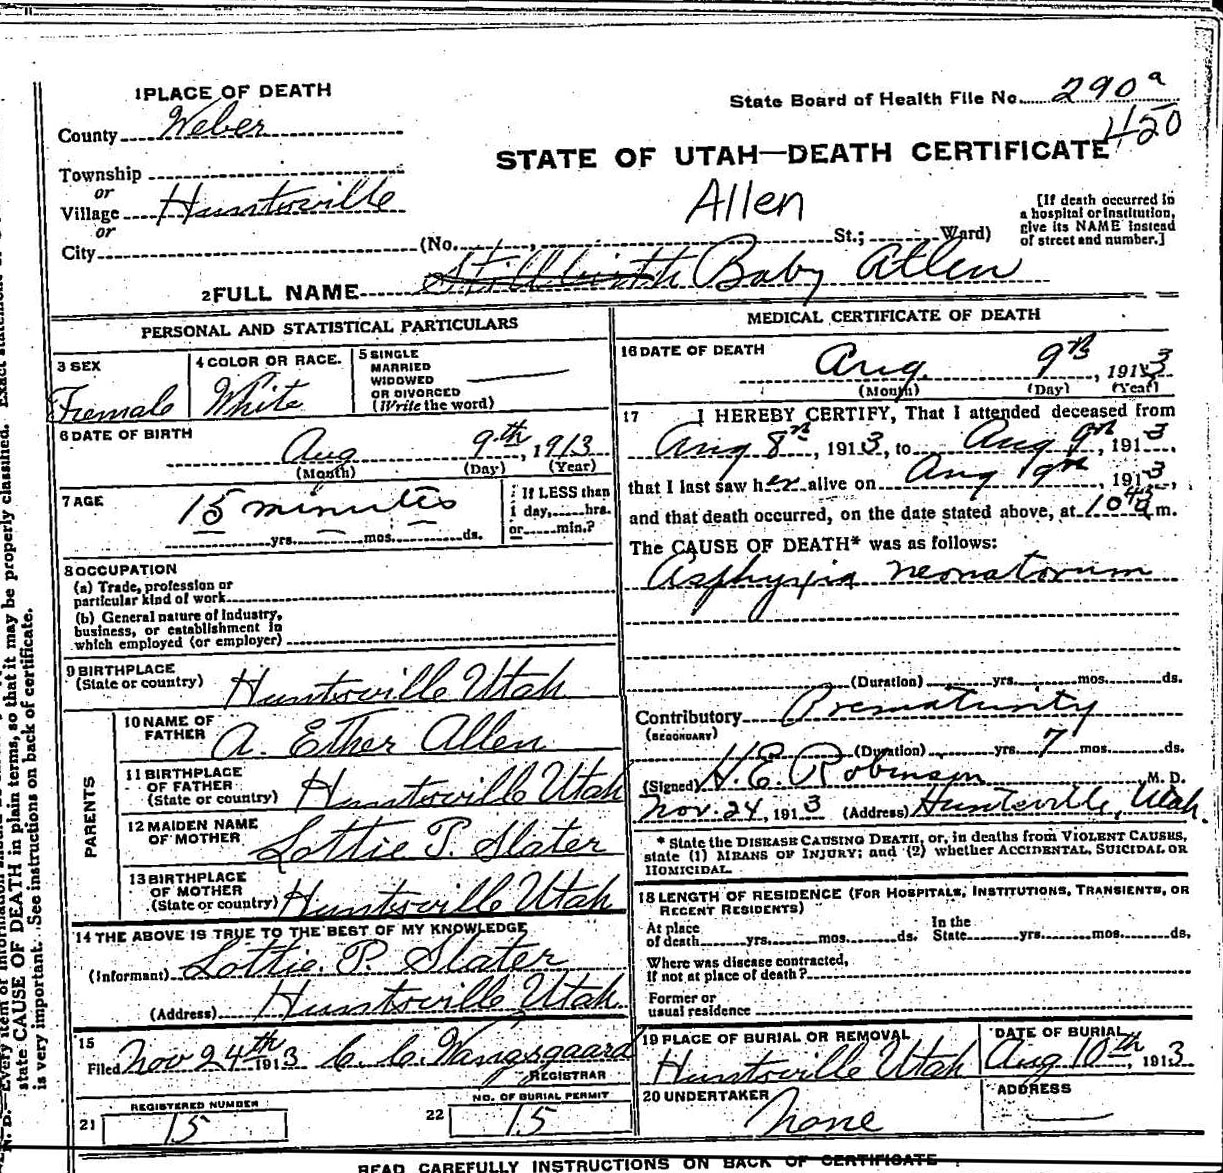 1 PLACE OF DEATH
County Weber
State Board of Health File No. 290a
450
STATE OF UTAH—DEATH CERTIFICATE
Township
or
Village Huntsville
or
City
Allen
(No. , St.; Ward)
[If death occurred in
a hospital or institution,
give its NAME instead
of street and number.]
2 FULL NAME Stillbirth Baby Allen
PERSONAL AND STATISTICAL PARTICULARS
3 SEX
Female
4 COLOR OR RACE.
White
5 SINGLE
MARRIED
WIDOWED
OR DIVORCED
(Write the word)
6 DATE OF BIRTH
Aug 9th, 1913
(Month) (Day) (Year)
7 AGE
15 minutes
yrs. mos. ds.
If LESS than
1 day, hrs.
or min.?
8 OCCUPATION
(a) Trade, profession or
particular kind of work
(b) General nature of industry,
business, or establishment in
which employed (or employer)
9 BIRTHPLACE
(State or country) Huntsville Utah
PARENTS
10 NAME OF
FATHER A. Ether Allen
11 BIRTHPLACE
OF FATHER
(State or country) Huntsville Utah
12 MAIDEN NAME
OF MOTHER Lottie P. Slater
13 BIRTHPLACE
OF MOTHER
(State or country) Huntsville Utah
14 THE ABOVE IS TRUE TO THE BEST OF MY KNOWLEDGE
(Informant) Lottie. P. Slater
(Address) Huntsville Utah
15
Filed Nov 24th 1913 C. C. Wangsgaard
REGISTRAR
REGISTERED NUMBER
21 15
NO. OF BURIAL PERMIT
22 15
MEDICAL CERTIFICATE OF DEATH
16 DATE OF DEATH
Aug. 9th, 1913
(Month) (Day) (Year)
17 I HEREBY CERTIFY, That I attended deceased from
Aug 8th, 1913, to Aug 9th, 1913,
that I last saw her alive on Aug 9th, 1913,
and that death occurred, on the date stated above, at 10 m.
The CAUSE OF DEATH* was as follows:
Asphyxia neonatorum
(Duration) yrs. mos. ds.
Contributory Prematurity
(SECONDARY)
(Duration) yrs. 7 mos. ds.
(Signed) H. E. Robinson M. D.
Nov. 24, 1913 (Address) Huntsville, Utah.
* State the DISEASE CAUSING DEATH, or, in deaths from VIOLENT CAUSES,
state (1) MEANS OF INJURY; and (2) whether ACCIDENTAL, SUICIDAL OR
HOMICIDAL.
18 LENGTH OF RESIDENCE (FOR HOSPITALS, INSTITUTIONS, TRANSIENTS, OR
RECENT RESIDENTS)
At place
of death yrs. mos. ds.
In the
State yrs. mos. ds.
Where was disease contracted,
if not at place of death?
Former or
usual residence
19 PLACE OF BURIAL OR REMOVAL
Huntsville Utah
DATE OF BURIAL
Aug 10th, 1913
20 UNDERTAKER
None
ADDRESS
READ CAREFULLY INSTRUCTIONS ON BACK OF CERTIFICATE
state CAUSE OF DEATH in plain terms, so that it may be properly classified. Exact statement
is very important. See instructions on back of certificate.